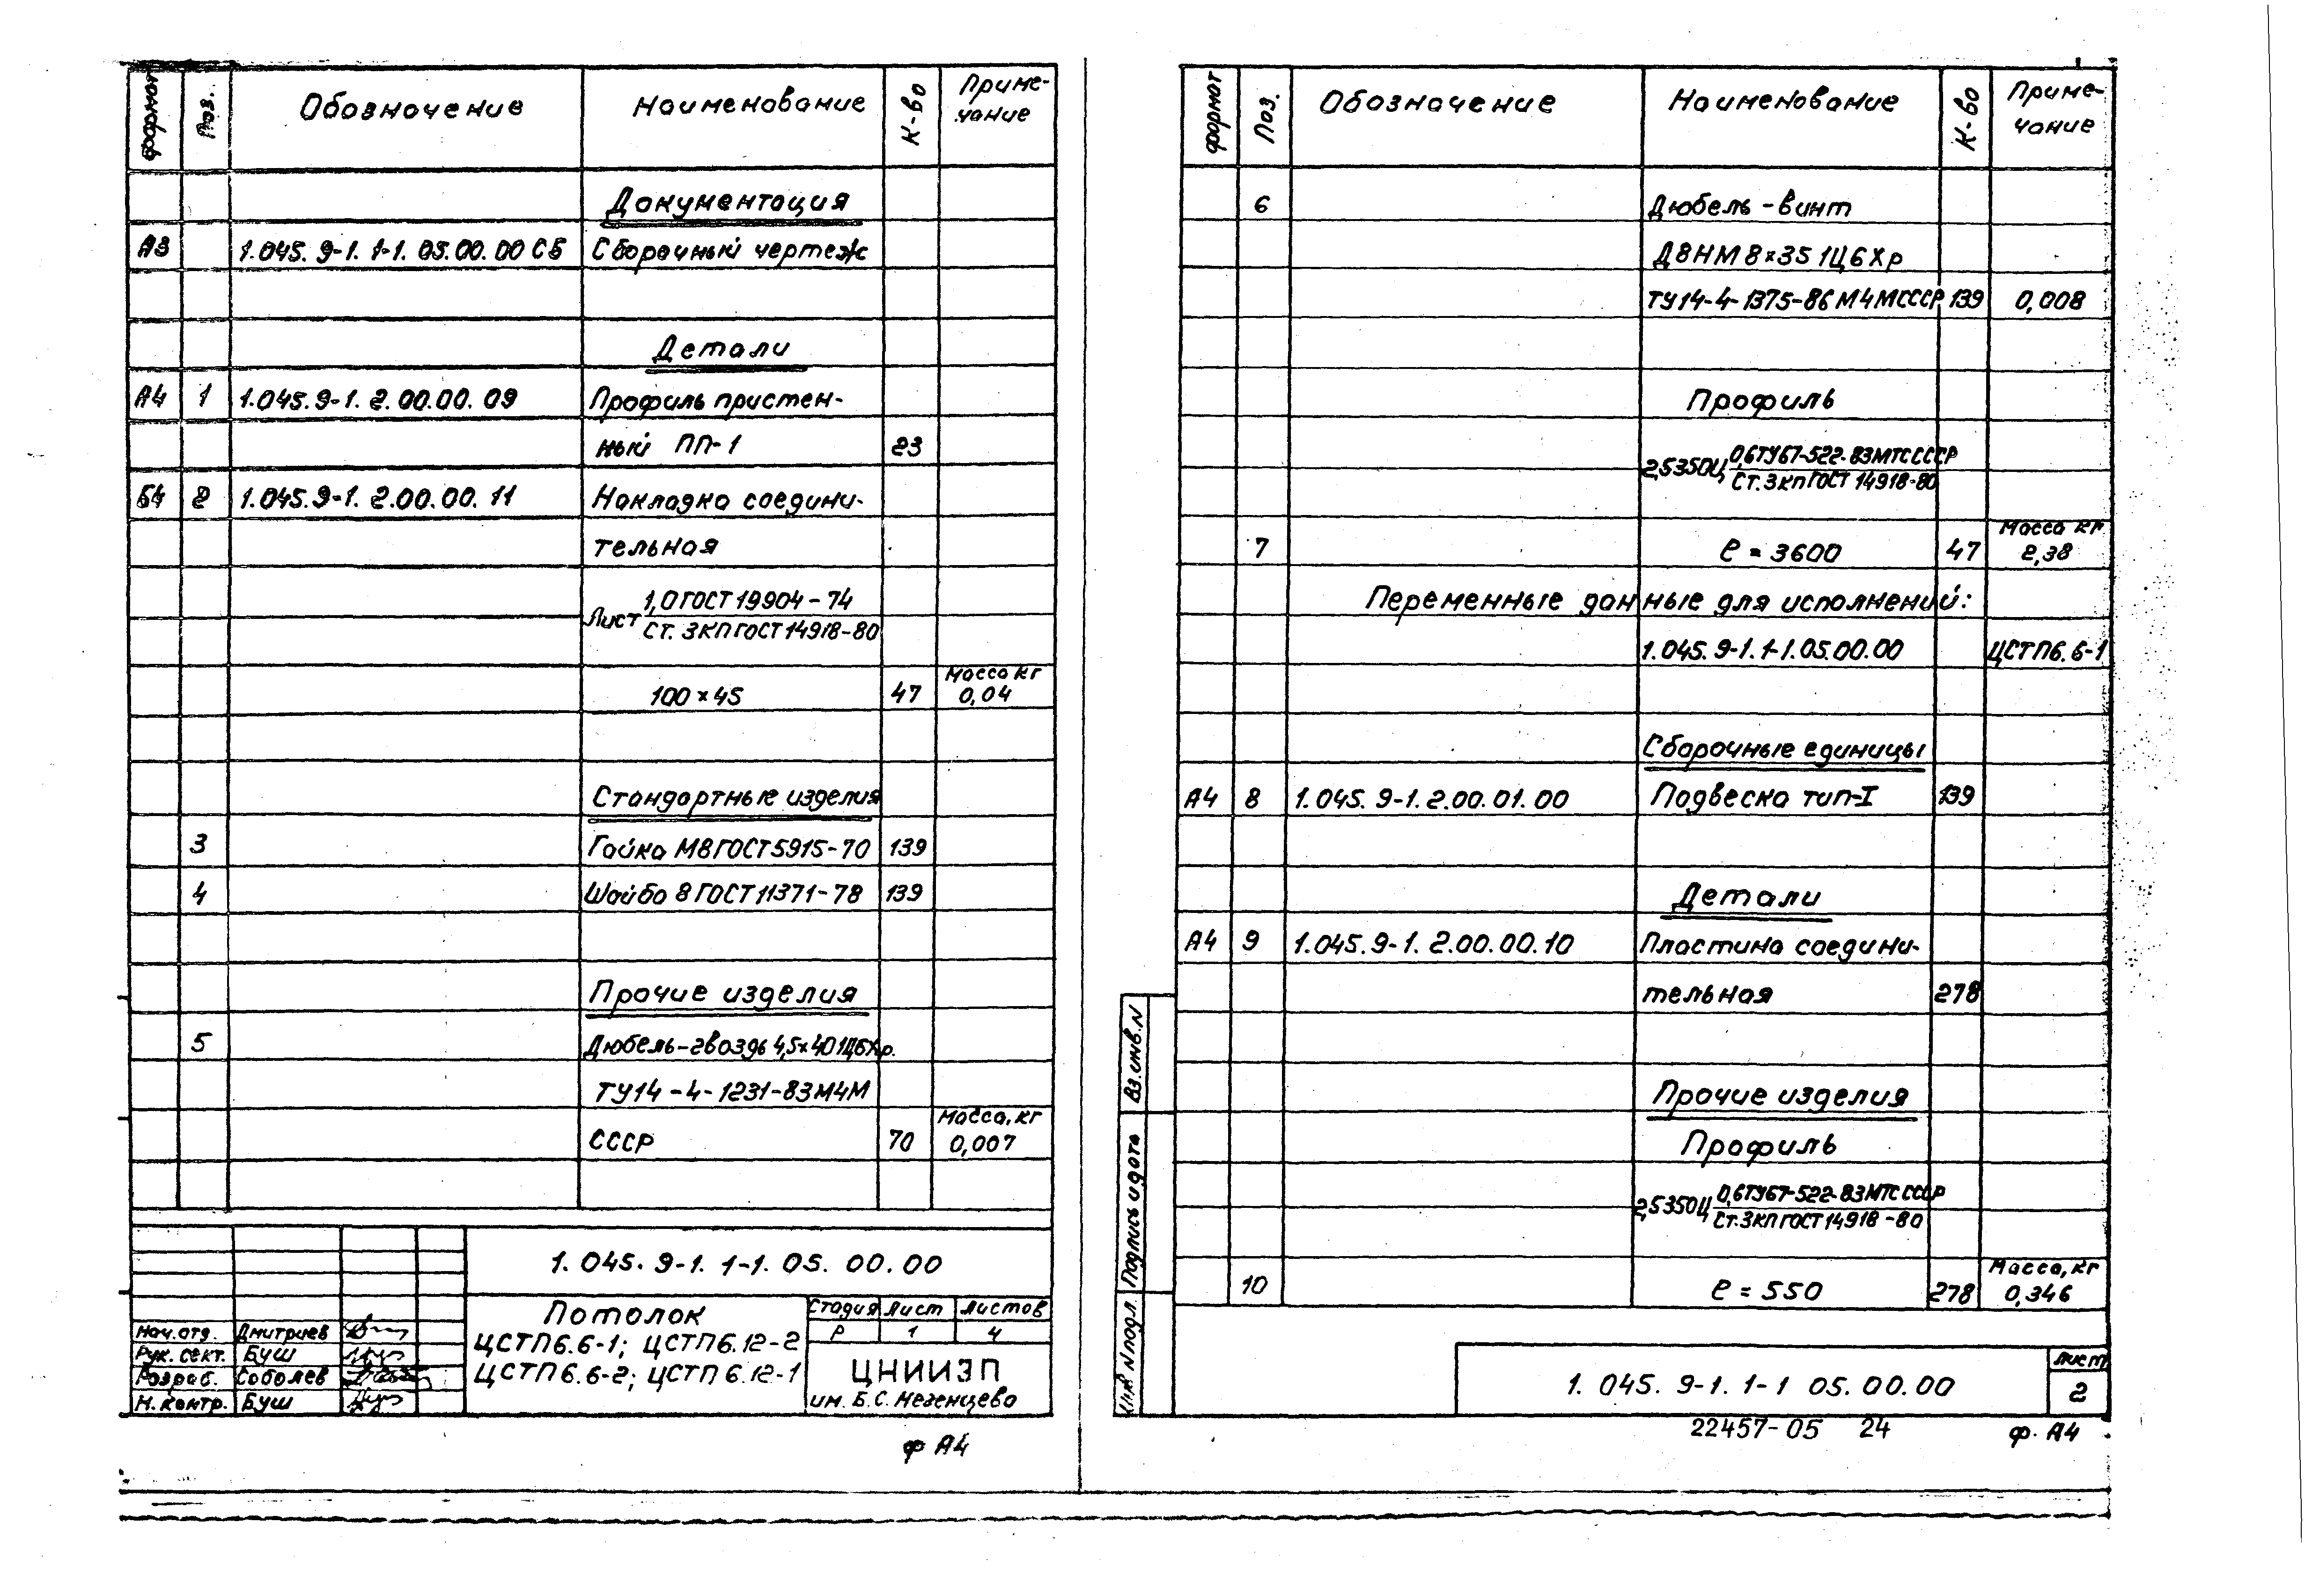 формат Поз. Обозначение Наименование К-во Приме-
чание
Документация
А3 1.045.9-1.1-1.05.00.00 СБ Сборочный чертеж
Детали
А4 1 1.045.9-1.2.00.00.09 Профиль пристен-
ный ПП-1 23
Б4 2 1.045.9-1.2.00.00.11 Накладка соедини-
тельная
Лист 1,0 ГОСТ 19904-74
Ст. 3кп ГОСТ 14918-80
Масса кг
100×45 47 0,04
Стандартные изделия
3 Гайка М8 ГОСТ 5915-70 139
4 Шайба 8 ГОСТ 11371-78 139
Прочие изделия
5 Дюбель-гвоздь 4,5×40 1Ц6Хр.
ТУ14-4-1231-83 М4М
Масса, кг
СССР 70 0,007
1.045.9-1.1-1.05.00.00
Потолок
ЦСТП6.6-1; ЦСТП6.12-2
ЦСТП6.6-2; ЦСТП6.12-1
Стадия Лист Листов
Р 1 4
ЦНИИЭП
им. Б.С. Мезенцева
Нач. отд. Дмитриев
Рук. сект. Буш
Разраб. Соболев
Н. контр. Буш
ф А4
формат Поз. Обозначение Наименование К-во Приме-
чание
6 Дюбель-винт
Д8НМ8×35 1Ц6Хр
ТУ14-4-1375-86 М4МСССР 139 0,008
Профиль
2,5350Ц 0,6ТУ67-522-83МТС СССР
Ст.3кп ГОСТ 14918-80
Масса кг
7 ℓ = 3600 47 2,38
Переменные данные для исполнений:
1.045.9-1.1-1.05.00.00 ЦСТП6.6-1
Сборочные единицы
А4 8 1.045.9-1.2.00.01.00 Подвеска тип-I 139
Детали
А4 9 1.045.9-1.2.00.00.10 Пластина соедини-
тельная 278
Прочие изделия
Профиль
2,5350Ц 0,6ТУ67-522-83МТС СССР
Ст.3кп ГОСТ 14918-80
Масса, кг
10 ℓ = 550 278 0,346
Вз. инв. N
Подпись и дата
Инв N подл.
1.045.9-1.1-1 05.00.00
Лист
2
22457-05 24 ф. А4